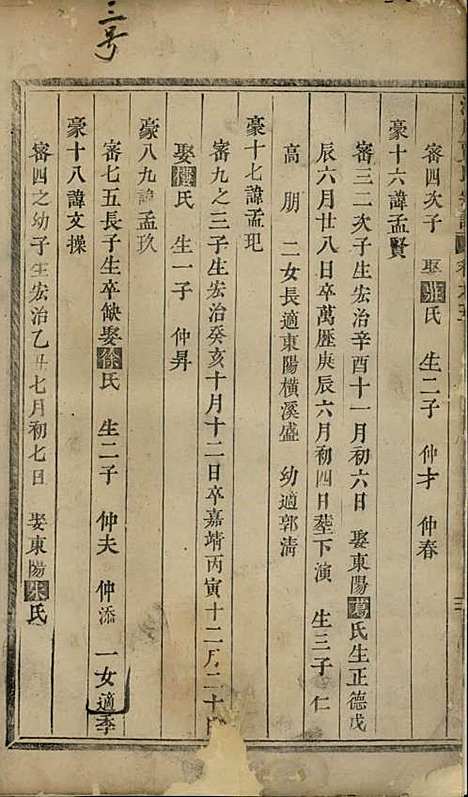 三号
審四次子　娶張氏　生二子　仲才　仲春
豪十六諱孟賢
審三二次子生宏治辛酉十一月初六日　娶東陽葛氏生正德戊
辰六月廿八日卒萬歷庚辰六月初四日塟下演　生三子　仁
高　朋　二女長適東陽橫溪盛　幼適郭清
豪十七諱孟玘
審九之三子生宏治癸亥十月十二日卒嘉靖丙寅十二月二十
娶樓氏　生一子　仲昇
豪八九諱孟玖
審七五長子生卒缺娶徐氏　生二子　仲夫　仲添　一女適季
豪十八諱文操
審四之幼子生宏治乙丑七月初七日　娶東陽朱氏